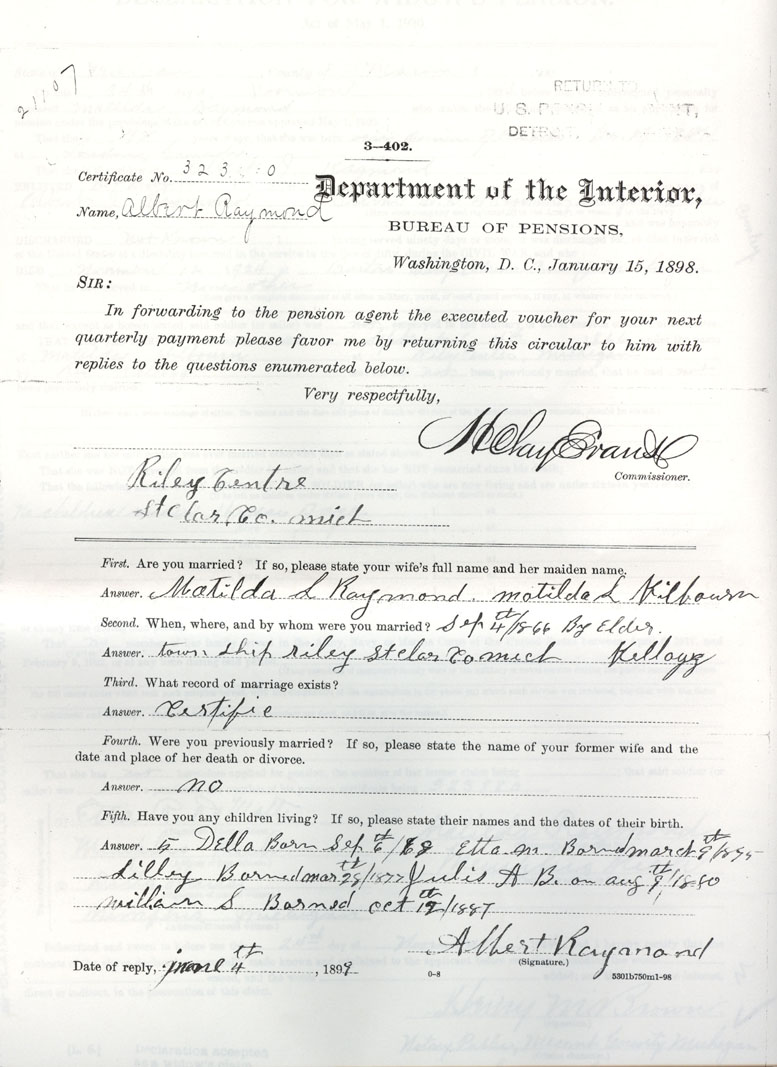 21107
RETURN TO
U. S. PENSION AGENT,
DETROIT,
3—402.
Certificate No. 323 0
Name, Albert Raymond
Department of the Interior,
BUREAU OF PENSIONS,
Washington, D. C., January 15, 1898.
SIR:
In forwarding to the pension agent the executed voucher for your next
quarterly payment please favor me by returning this circular to him with
replies to the questions enumerated below.
Very respectfully,
H Clay Evans
Commissioner.
Riley Centre
St Clar, Co. mich
First. Are you married? If so, please state your wife's full name and her maiden name.
Answer. Matilda L Raymond. matilda L Kilbourn
Second. When, where, and by whom were you married? Sep 4th/1866 By Elder.
Answer. town ship riley St clar Co mich Kellogg
Third. What record of marriage exists?
Answer. Certific
Fourth. Were you previously married? If so, please state the name of your former wife and the
date and place of her death or divorce.
Answer. no
Fifth. Have you any children living? If so, please state their names and the dates of their birth.
Answer. 5 Della Born Sep 6th/68 Etta. m. Borned march 9th/1875
Lilley Borned mar 28th/1877 Julis A B. on aug 9th/1880
William S Borned oct 12th/1887
Albert Raymond
Date of reply, june 4th, 1899
(Signature.)
0-8
5301b750m1-98